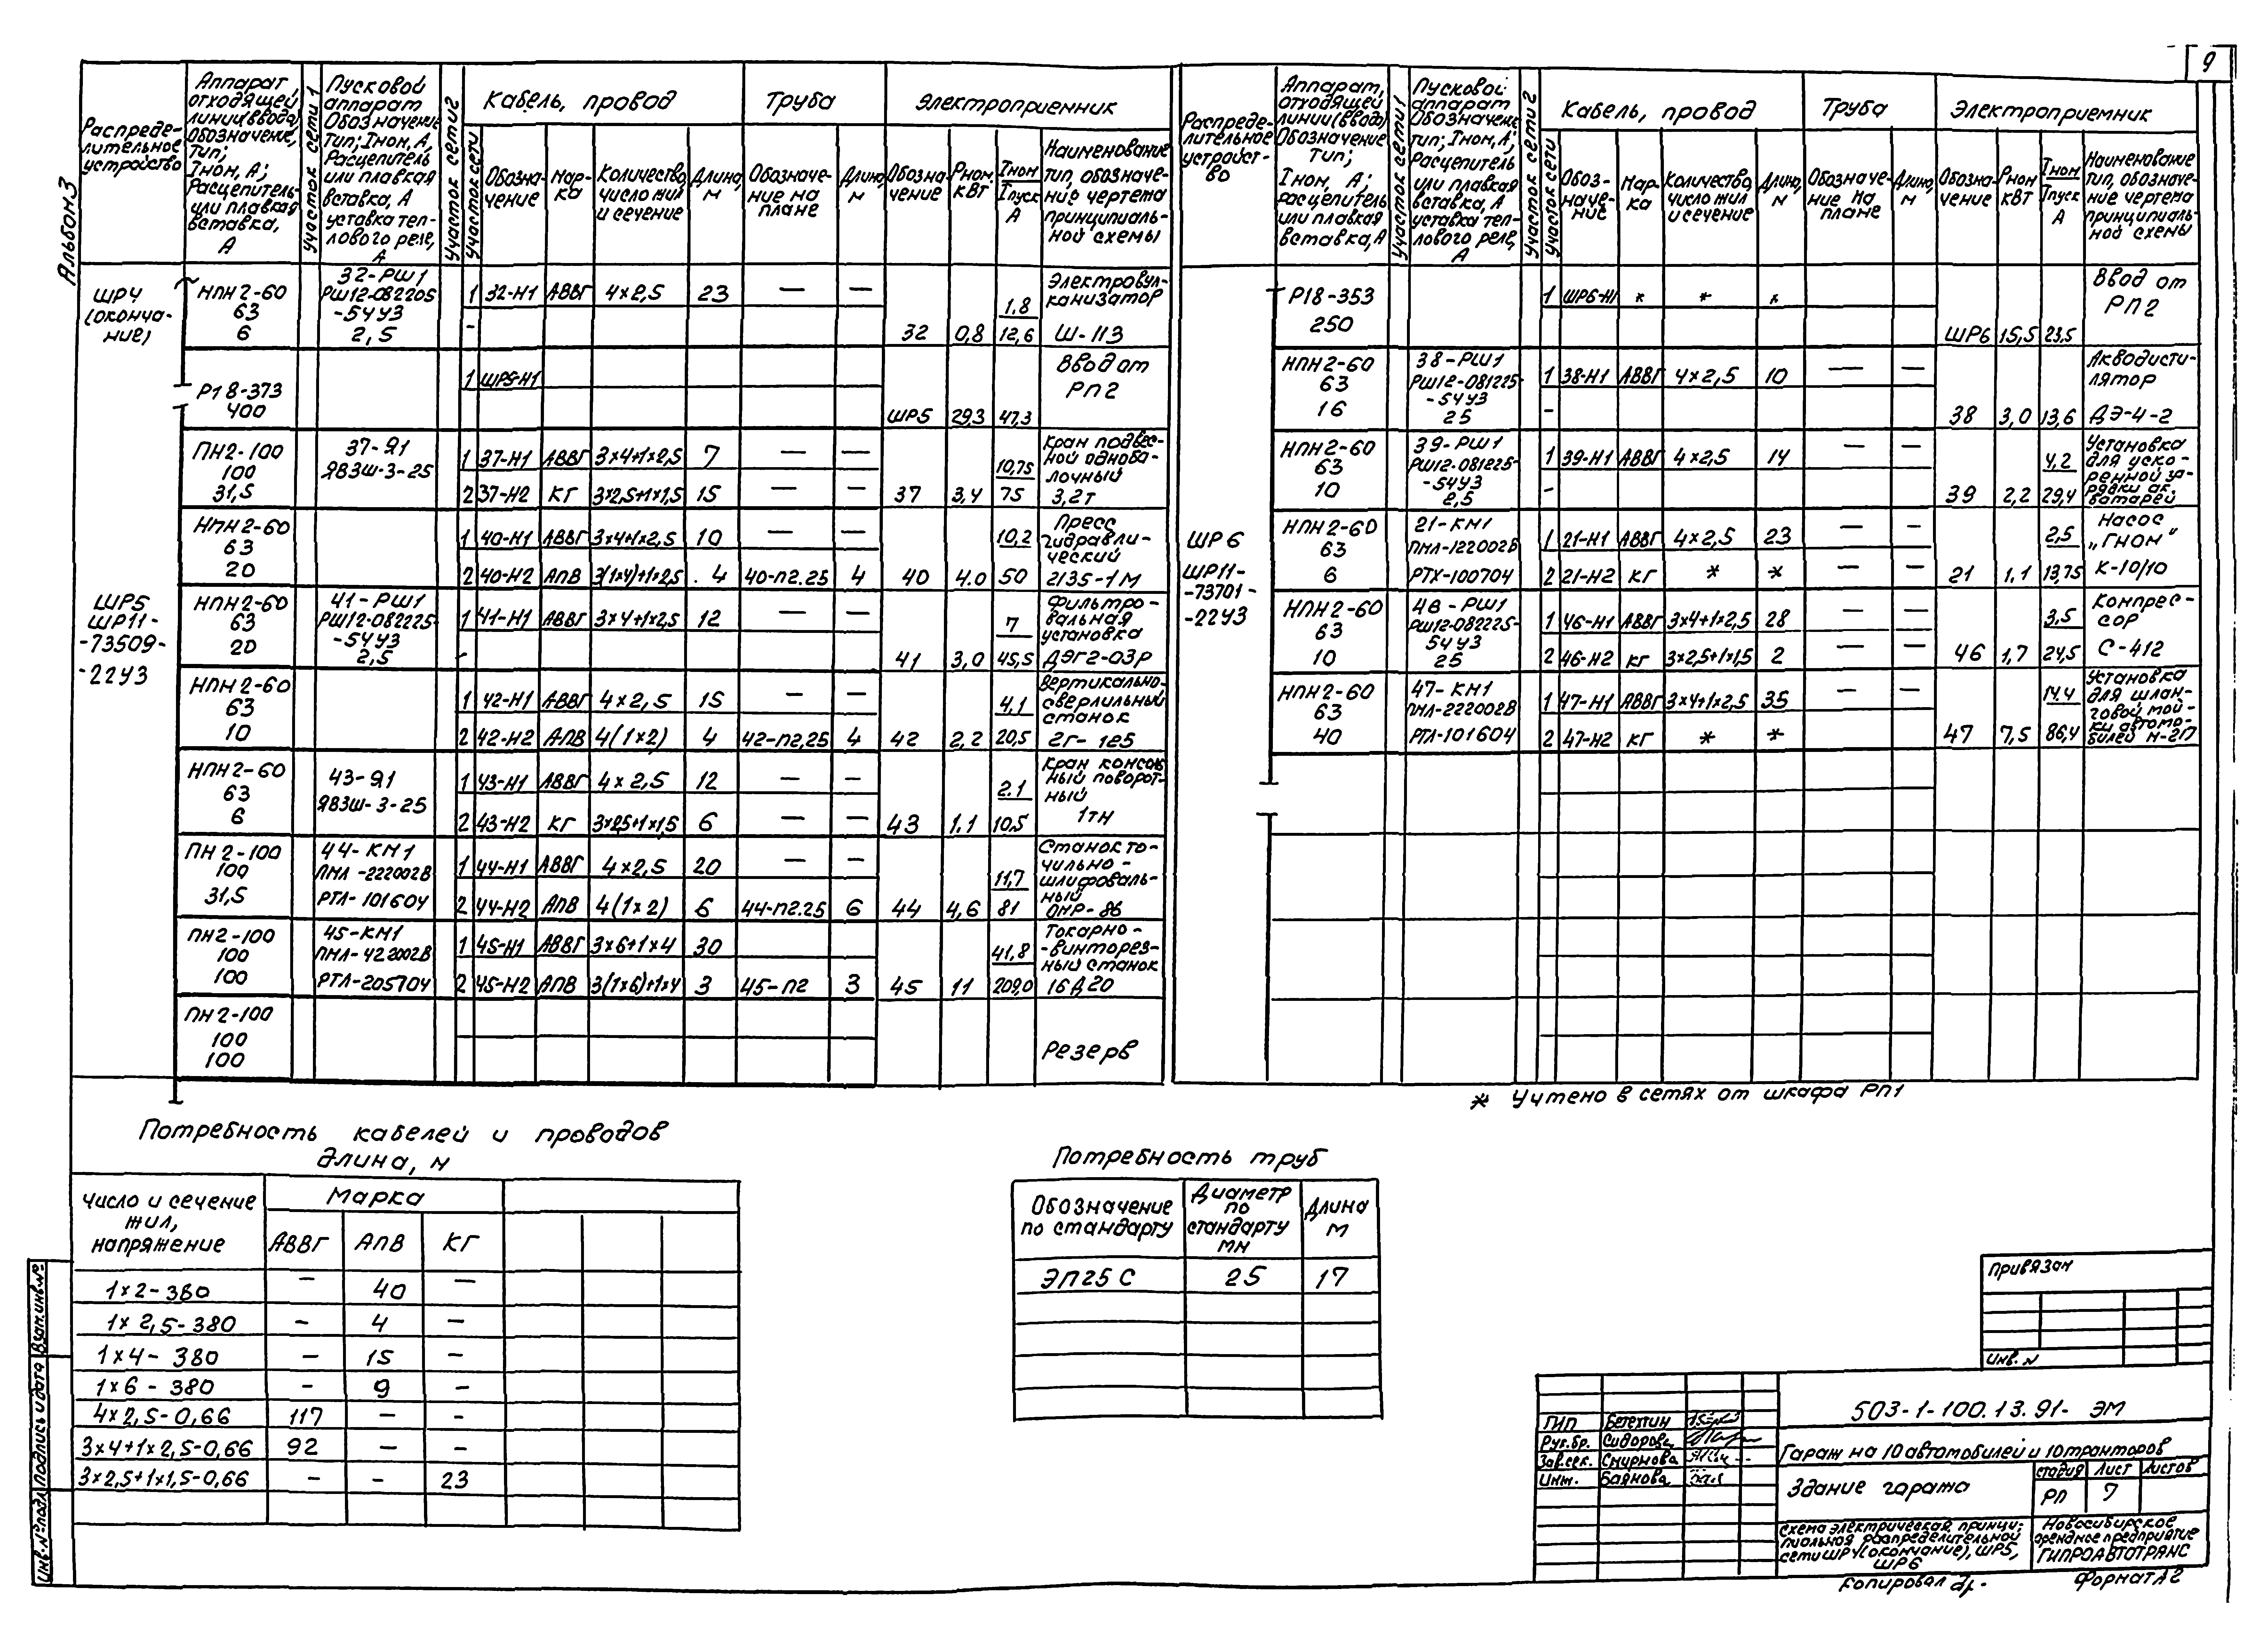 9
Альбом 3
Распреде-
лительное
устройство
Аппарат
отходящей
линии(ввода)
Обозначение,
Тип;
Iном, А;
Расцепитель
или плавкая
вставка,
А
Участок сети 1
Пусковой
аппарат
Обозначение
Тип; Iном, А,
Расцепитель
или плавкая
вставка, А
уставка теп-
лового реле,
А
Участок сети 2
Кабель, провод
Участок сети
Обозна-
чение
Мар-
ка
Количество,
число жил
и сечение
Длина,
м
Труба
Обозначе-
ние на
плане
Длин,
м
Электроприемник
Обозна-
чение
Pном,
кВт
Iном
Iпуск
А
Наименование
тип, обозначе-
ние чертежа
принципиаль-
ной схемы
ШРЧ
(оконча-
ние)
НПН2-60
63
6
32-РШ1
РШ12-082205
-54У3
2,5
1 32-Н1 АВВГ 4×2,5 23 — —
-
32 0,8 1,8 12,6
Электровул-
канизатор
Ш-113
Р18-373
400
1 ШР5-Н1
ШР5 29,3 47,3
Ввод от
РП2
ШР5
ШР11-
-73509-
-22У3
ПН2-100
100
31,5
37-Я1
ЯВЗШ-3-25
1 37-Н1 АВВГ 3×4+1×2,5 7 — —
2 37-Н2 КГ 3×2,5+1×1,5 15 — —
37 3,4 10,75 75
Кран подвес-
ной одноба-
лочный
3,2т
НПН2-60
63
20
1 40-Н1 АВВГ 3×4+1×2,5 10 — —
2 40-Н2 АПВ 3(1×4)+1×2,5 4 40-п2.25 4
40 4.0 10,2 50
Пресс
гидравли-
ческий
2135-1М
НПН2-60
63
20
41-РШ1
РШ12-082225-
-54У3
2,5
1 41-Н1 АВВГ 3×4+1×2,5 12 — —
-
41 3,0 7 45,5
Фильтро-
вальная
установка
ДЭГ2-03Р
НПН2-60
63
10
1 42-Н1 АВВГ 4×2,5 15 — —
2 42-Н2 АПВ 4(1×2) 4 42-п2,25 4
42 2,2 4,1 20,5
Вертикально-
сверлильный
станок
2Г-125
НПН2-60
63
6
43-Я1
ЯВЗШ-3-25
1 43-Н1 АВВГ 4×2,5 12 — —
2 43-Н2 КГ 3×2,5+1×1,5 6 — —
43 1.1 2.1 10,5
Кран консоль
ный поворот-
ный
1тн
ПН2-100
100
31,5
44-КМ1
ПМЛ-222002В
РТЛ-101604
1 44-Н1 АВВГ 4×2,5 20 — —
2 44-Н2 АПВ 4(1×2) 6 44-п2.25 6
44 4,6 11,7 81
Станок то-
чильно-
шлифоваль-
ный
ОНР-86
ПН2-100
100
100
45-КМ1
ПМЛ-422002В
РТЛ-205704
1 45-Н1 АВВГ 3×6+1×4 30
2 45-Н2 АПВ 3(1×6)+1×4 3 45-п2 3
45 11 41,8 209,0
Токарно-
-винторез-
ный станок
16Д20
ПН2-100
100
100
Резерв
Распреде-
лительное
устройст-
во
Аппарат,
отходящей
линии(ввода)
Обозначение
Тип;
Iном, А;
Расцепитель
или плавкая
вставка, А
Участок сети 1
Пусковой
аппарат
Обозначение
тип; Iном, А;
Расцепитель
или плавкая
вставка, А
уставка теп-
лового реле,
А
Участок сети 2
Кабель, провод
Участок сети
Обоз-
наче-
ние
Мар-
ка
Количество,
число жил
и сечение
Длина,
м
Труба
Обозначе-
ние на
плане
Длина,
м
Электроприемник
Обозна-
чение
Pном
кВт
Iном
Iпуск
А
Наименование
тип, обозначе-
ние чертежа
принципиаль-
ной схемы
ШР6
ШР11-
-73701-
-22У3
Р18-353
250
1 ШР6-Н1 * * *
ШР6 15,5 23,5
Ввод от
РП2
НПН2-60
63
16
38-РШ1
РШ12-081225-
-54У3
25
1 38-Н1 АВВГ 4×2,5 10 — —
-
38 3,0 13,6
Акводисти-
лятор
ДЭ-4-2
НПН2-60
63
10
39-РШ1
РШ12-081225-
-54У3
2,5
1 39-Н1 АВВГ 4×2,5 14 — —
-
39 2,2 4,2 29,4
Установка
для уско-
ренной за-
рядки ак.
батарей
НПН2-60
63
6
21-КМ1
ПМЛ-122002В
РТХ-100704
1 21-Н1 АВВГ 4×2,5 23 — —
2 21-Н2 КГ * * — —
21 1,1 2,5 13,75
Насос
„Гном"
К-10/10
НПН2-60
63
10
4В-РШ1
РШ12-082225-
54У3
25
1 46-Н1 АВВГ 3×4+1×2,5 28 — —
2 46-Н2 КГ 3×2,5+1×1,5 2 — —
46 1,7 3,5 24,5
Компрес-
сор
С-412
НПН2-60
63
40
47-КМ1
ПМЛ-222002В
РТЛ-101604
1 47-Н1 АВВГ 3×4+1×2,5 35 — —
2 47-Н2 КГ * *
47 7,5 14,4 86,4
Установка
для шлан-
говой мой-
ки автомо-
билей М-2П
* Учтено в сетях от шкафа РП1
Потребность кабелей и проводов
длина, м
Число и сечение
жил,
напряжение
Марка
АВВГ АПВ КГ
1×2-380 — 40 —
1×2,5-380 - 4 -
1×4-380 — 15 -
1×6-380 - 9 -
4×2,5-0,66 117 — -
3×4+1×2,5-0,66 92 — -
3×2,5+1×1,5-0,66 - - 23
Потребность труб
Обозначение
по стандарту
Диаметр
по
стандарту
мм
Длина
м
ЭП25С 25 17
Привязан
Инв. N
503-1-100.13.91- ЭМ
ГИП Бетехтин
Рук.бр. Сидорова
Зав.сек. Смирнова
Инж. Баянова
Гараж на 10 автомобилей и 10 тракторов
Здание гаража
Стадия Лист Листов
РП 7
Схема электрическая принци-
пиальная распределительной
сети ШРЧ(окончание), ШР5,
ШР6
Новосибирское
арендное предприятие
ГИПРОАВТОТРАНС
Копировал
Формат А2
Взам.инв.№
Подпись и дата
Инв.№подл